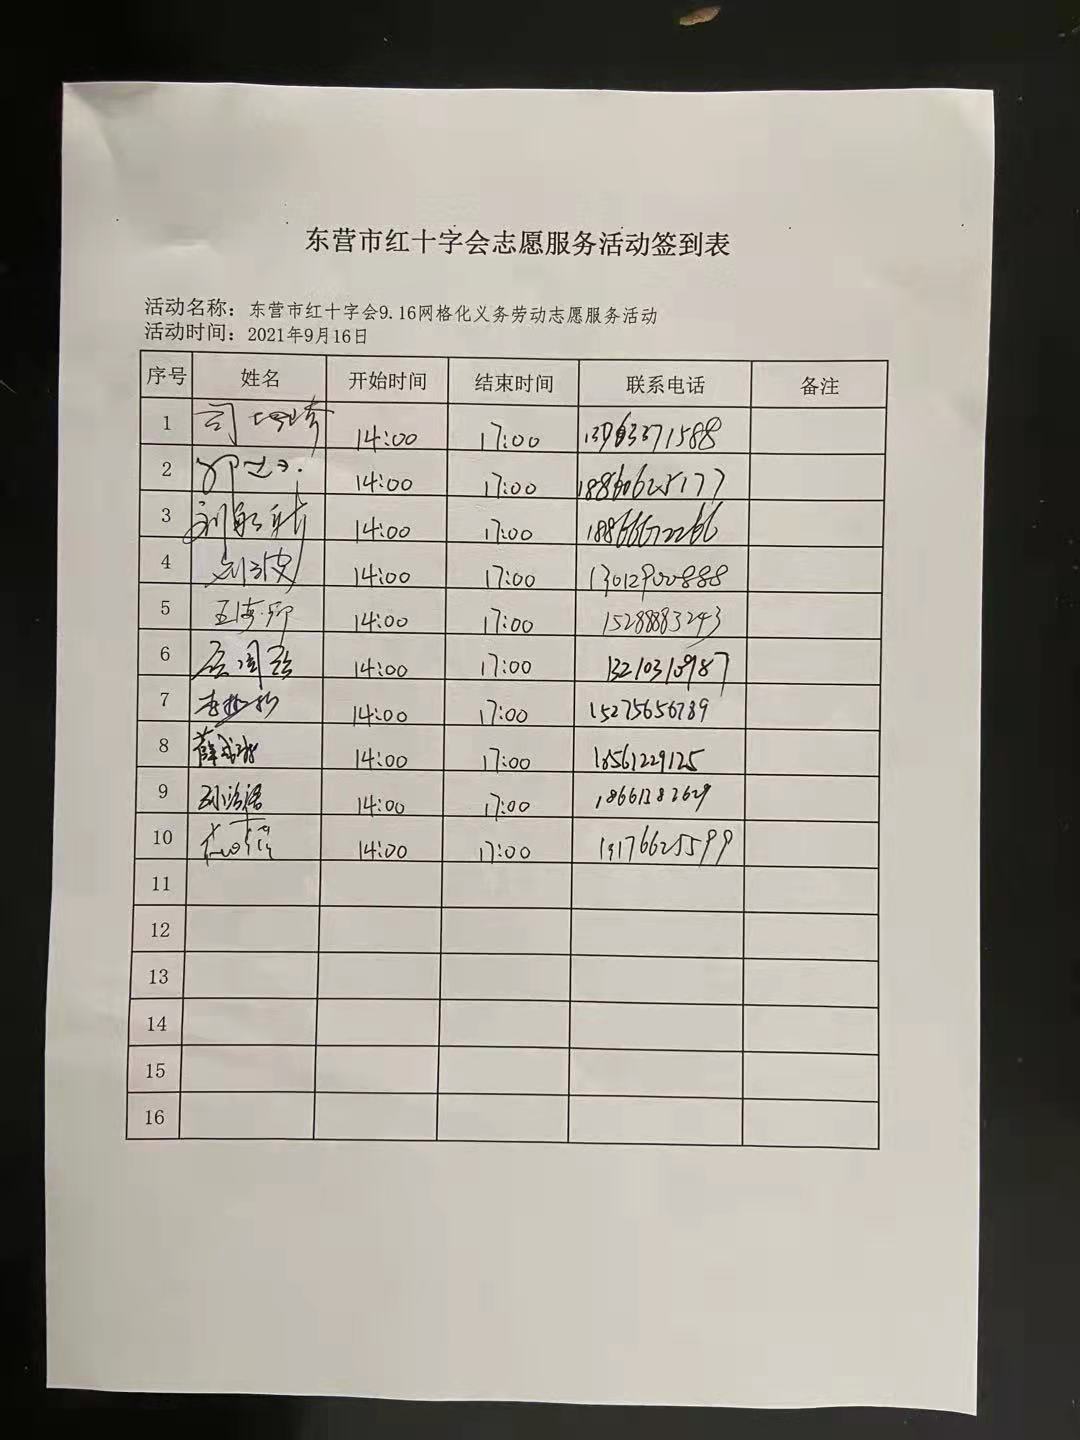 东营市红十字会志愿服务活动签到表
活动名称：东营市红十字会9.16网格化义务劳动志愿服务活动
活动时间：2021年9月16日
序号 姓名 开始时间 结束时间 联系电话 备注
1 司 14:00 17:00
2 14:00 17:00 18860625177
3 14:00 17:00 18866672266
4 刘 14:00 17:00 13012900888
5 王海 14:00 17:00 15288883243
6 14:00 17:00
7 李 14:00 17:00 15275656789
8 薛 14:00 17:00 18561229125
9 孙 14:00 17:00
10 14:00 17:00
11
12
13
14
15
16